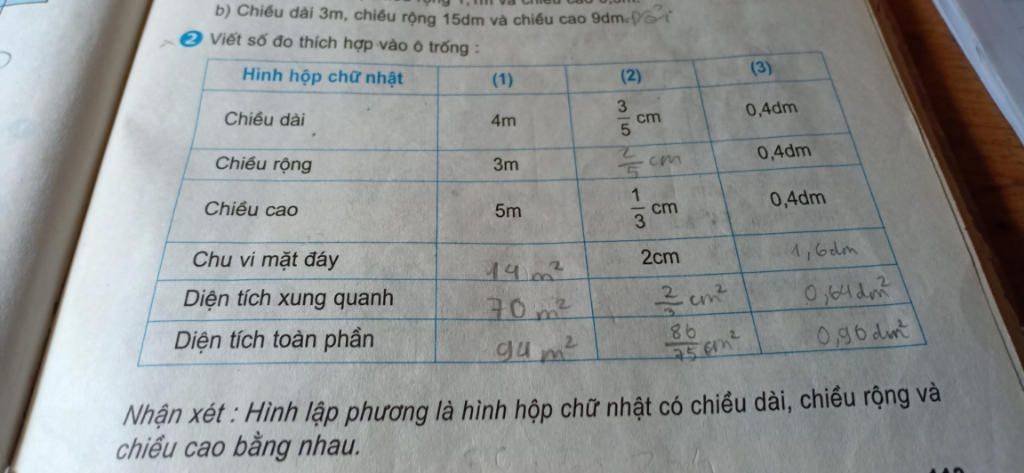 b) Chiều dài 3m, chiều rộng 15dm và chiều cao 9dm.
2 Viết số đo thích hợp vào ô trống :
Hình hộp chữ nhật (1) (2) (3)
Chiều dài 4m 3/5 cm 0,4dm
Chiều rộng 3m 2/5 cm 0,4dm
Chiều cao 5m 1/3 cm 0,4dm
Chu vi mặt đáy 14 m² 2cm 1,6dm
Diện tích xung quanh 70 m² 2/3 cm² 0,64dm²
Diện tích toàn phần 94 m² 86/75 cm² 0,96 dm²
Nhận xét : Hình lập phương là hình hộp chữ nhật có chiều dài, chiều rộng và
chiều cao bằng nhau.